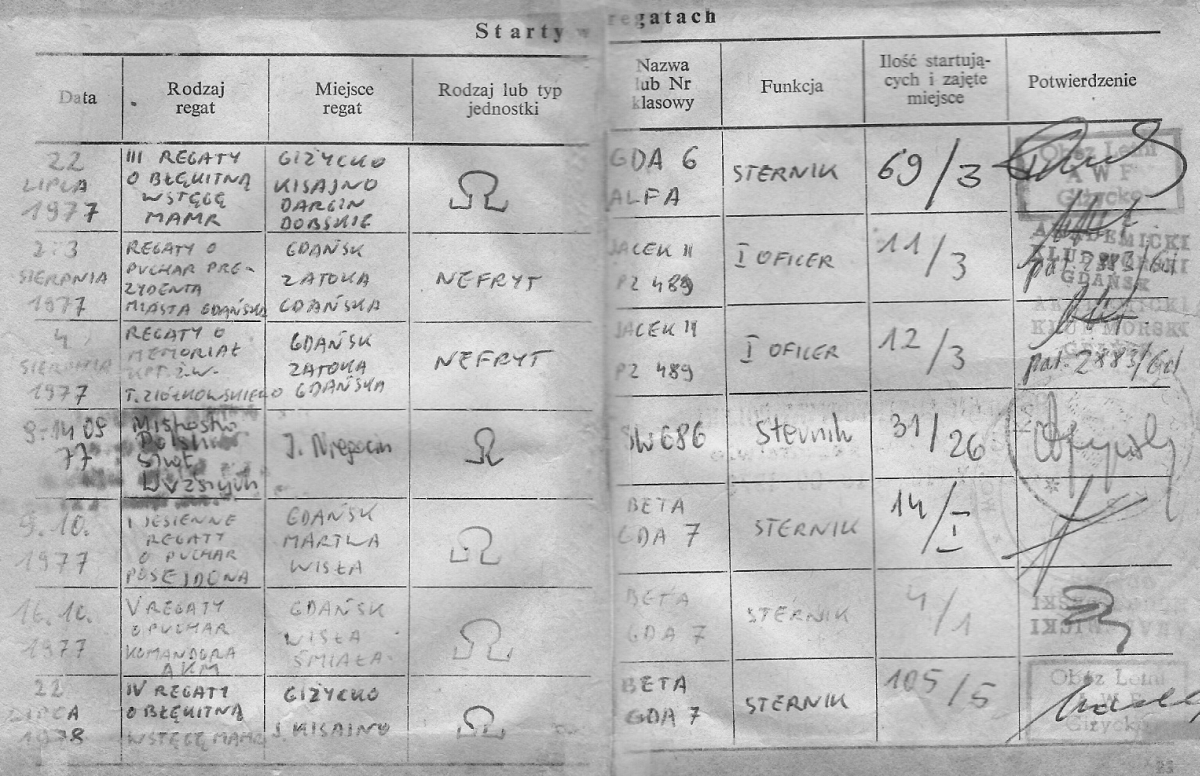 Starty w regatach
Data
Rodzaj
regat
Miejsce
regat
Rodzaj lub typ
jednostki
Nazwa
lub Nr
klasowy
Funkcja
Ilość startują-
cych i zajęte
miejsce
Potwierdzenie
22
LIPCA
1977
III REGATY
O BŁĘKITNĄ
WSTĘGĘ
MAMR
GIŻYCKO
KISAJNO
DARGIN
DOBSKIE
Ω
GDA 6
ALFA
STERNIK
69/3
Obóz Letni
AWF
Giżycko
2-3
SIERPNIA
1977
REGATY O
PUCHAR PRE-
ZYDENTA
MIASTA GDAŃSKA
GDAŃSK
ZATOKA
GDAŃSKA
NEFRYT
JACEK II
PZ 489
I OFICER
11/3
AKADEMICKI
KLUB MORSKI
GDAŃSK
pat. 2883/Gd
4
SIERPNIA
1977
REGATY O
MEMORIAŁ
KPT. Ż.W.
T. ZIÓŁKOWSKIEGO
GDAŃSK
ZATOKA
GDAŃSKA
NEFRYT
JACEK II
PZ 489
I OFICER
12/3
AKADEMICKI
KLUB MORSKI
GDAŃSK
pat. 2883/Gd
9-14 09
77
Mistrostw
Polski
Szkół
Wyższych
J. Niegocin
Ω
SW686
Sternik
31/26
9.10.
1977
I JESIENNE
REGATY
O PUCHAR
POSEJDONA
GDAŃSK
MARTWA
WISŁA
Ω
BETA
GDA 7
STERNIK
14/I
16.10.
1977
V REGATY
O PUCHAR
KOMANDORA
AKM
GDAŃSK
WISŁA
ŚMIAŁA
Ω
BETA
GDA 7
STERNIK
4/1
22
LIPCA
1978
IV REGATY
O BŁĘKITNĄ
WSTĘGĘ MAMR
GIŻYCKO
J. KISAJNO
Ω
BETA
GDA 7
STERNIK
105/5
Obóz Letni
AWF
Giżycko
23